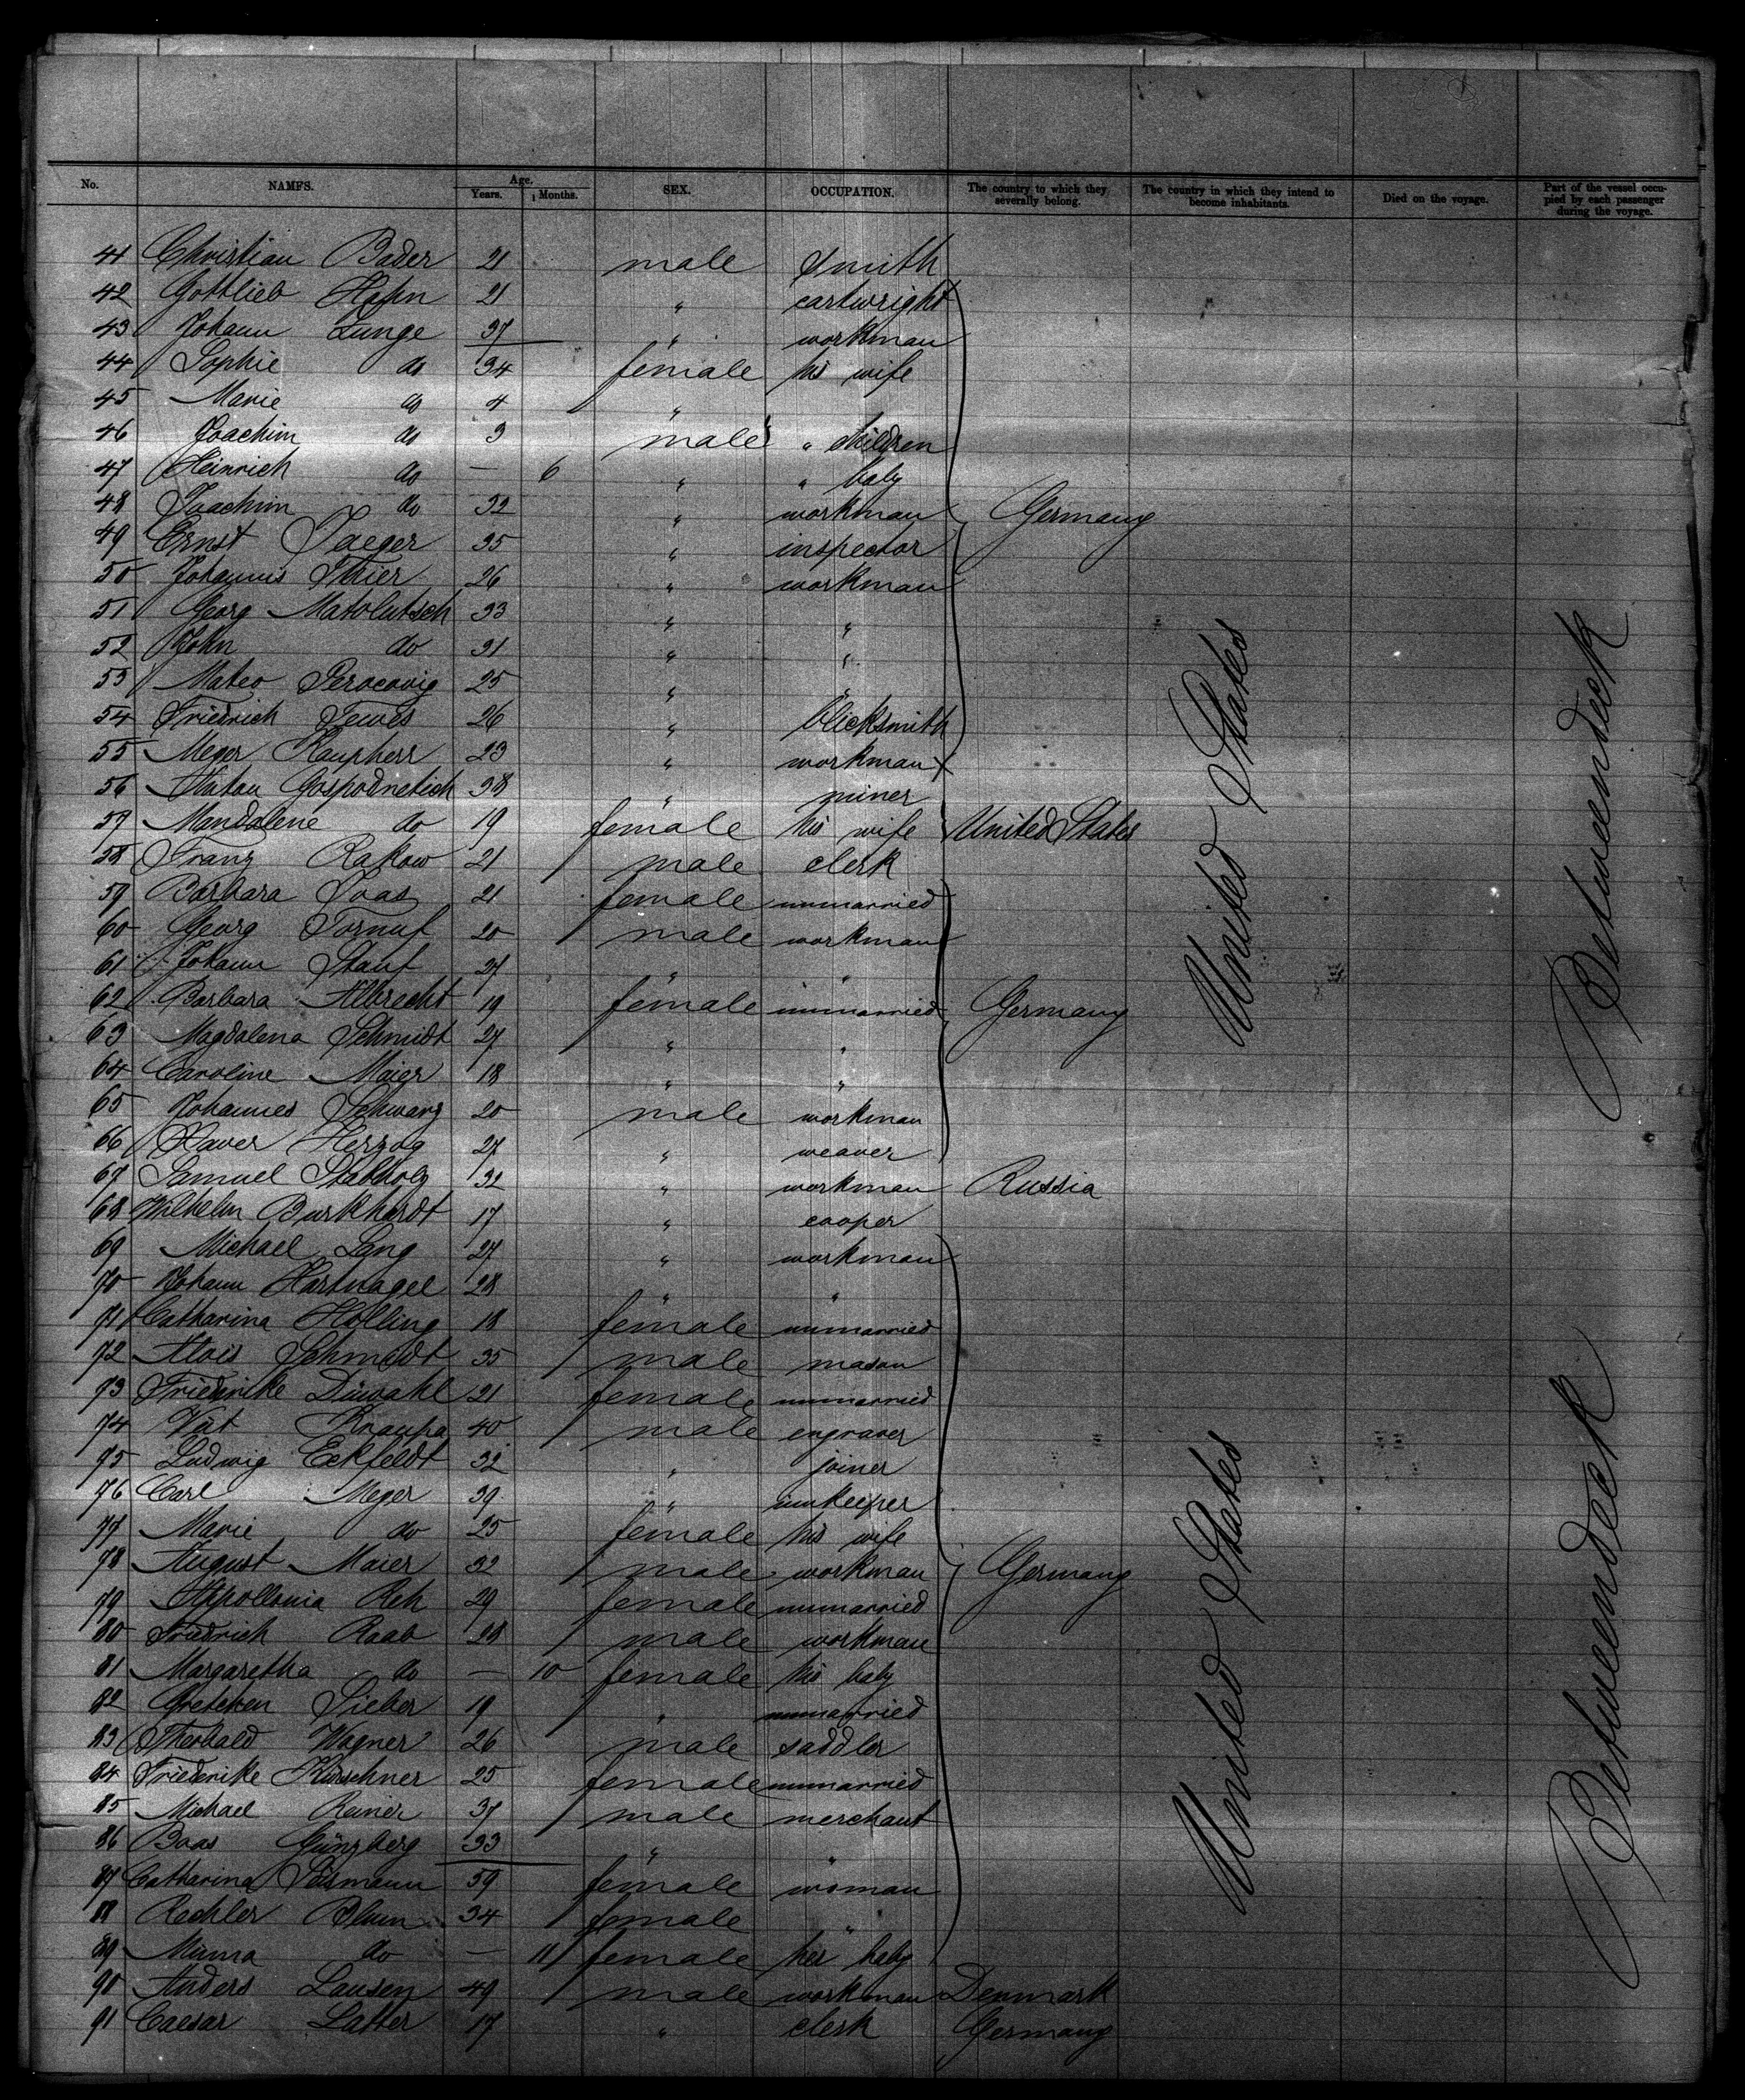 No. NAMES. Age. Years. Months. SEX. OCCUPATION. The country to which they severally belong. The country in which they intend to become inhabitants. Died on the voyage. Part of the vessel occupied by each passenger during the voyage.
41 Christian Bader 21 male smith
42 Gottlieb Hahn 21 " cartwright
43 Johann Lunge 37 " workman
44 Sophie do 34 female his wife
45 Marie do 4 "
46 Joachim do 3 male " children
47 Heinrich do — 6 " " baby
48 Joachim do 32 " workman Germany
49 Ernst Jaeger 35 " inspector
50 Johannis Thier 26 " workman
51 Georg Matolutsch 33 " "
52 John do 31 " "
53 Mateo Perocovig 25 " "
54 Friedrich Tewes 26 " blicksmith
55 Meyer Kaupherr 23 " workman
56 Antan Gospodnetich 38 " miner
57 Mandalene do 19 female his wife United States
58 Franz Rakow 21 male clerk
59 Barbara Joas 21 female unmarried
60 Georg Tornuf 20 male workman
61 Johann Stauf 27 " "
62 Barbara Albrecht 19 female unmarried Germany
63 Magdalena Schmidt 27 " "
64 Caroline Maier 18 " "
65 Johannes Schwarz 20 male workman
66 Xaver Herzog 27 " weaver
67 Samuel Stabholz 32 " workman Russia
68 Wilhelm Burkhardt 17 " cooper
69 Michael Lang 27 " workman
70 Johann Hartnagel 28 " "
71 Catharina Holling 18 female unmarried
72 Alois Schmidt 35 male mason
73 Friederike Düwahl 21 female unmarried
74 Vit Knaupa 40 male engraver
75 Ludwig Eckfeldt 32 " joiner
76 Carl Meyer 39 " innkeeper
77 Marie do 25 female his wife
78 August Maier 32 male workman Germany
79 Appollonia Reh 29 female unmarried
80 Friedrich Raab 28 male workman
81 Margaretha do — 10 female his baby
82 Gretchen Sieber 19 " unmarried
83 Theobald Wagner 26 male saddler
84 Friederike Kirschner 25 female unmarried
85 Michael Reiner 37 male merchant
86 Boas Günzberg 33 " "
87 Catharina 59 female woman
88 Rechler Blum 34 female "
89 Minna do — 11 female her baby
90 Anders Lausen 49 male workman Denmark
91 Caesar Latter 17 " clerk Germany
United States
Betweendeck
United States
Betweendeck